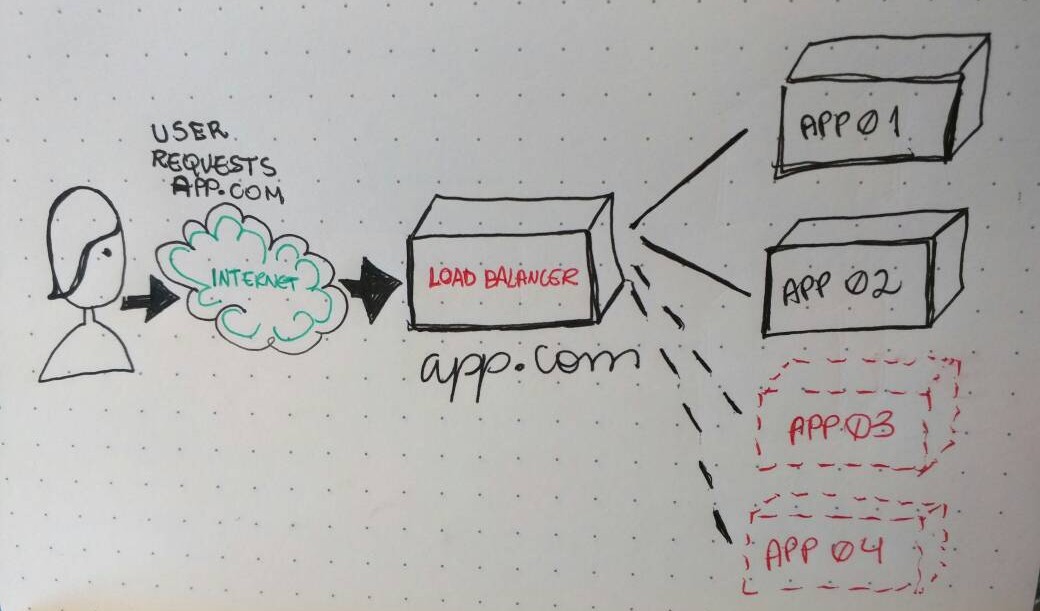 USER
REQUESTS
APP.COM
INTERNET
LOAD BALANCER
app.com
APP 01
APP 02
APP 03
APP 04